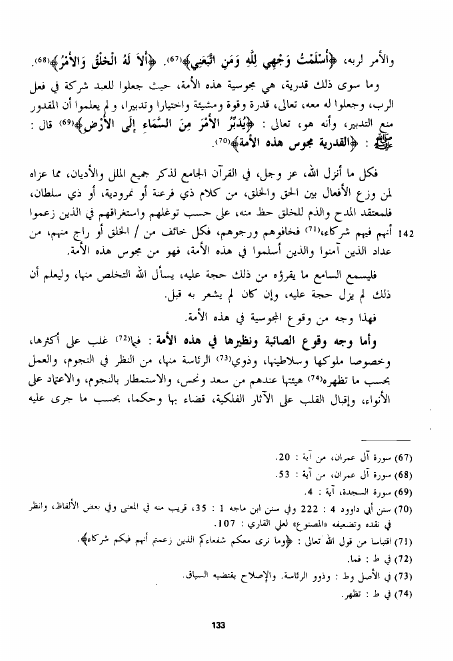 والأمر لربه، ﴿أَسْلَمْتُ وَجْهِي لِلَّهِ وَمَنِ اتَّبَعَنِي﴾(67). ﴿أَلَا لَهُ الْخَلْقُ وَالأَمْرُ﴾(68).
وما سوى ذلك قدرية، هي مجوسية هذه الأمة، حيث جعلوا للعبد شركة في فعل
الرب، وجعلوا له معه، تعالى، قدرة وقوة ومشيئة واختيارا وتدبيرا، ولم يعلموا أن المقدور
منع التدبير، وأنه هو، تعالى : ﴿يُدَبِّرُ الأَمْرَ مِنَ السَّمَاءِ إِلَى الأَرْضِ﴾(69) قال :
ﷺ : ﴿القدرية مجوس هذه الأمة﴾(70).
فكل ما أنزل الله، عز وجل، في القرآن الجامع لذكر جميع الملل والأديان، مما عزاه
لمن وزع الأفعال بين الحق والخلق، من كلام ذي فرعنة أو نمرودية، أو ذي سلطان،
فلمعتقد المدح والذم للخلق حظ منه، على حسب توغلهم واستغراقهم في الذين زعموا
142 أنهم فيهم شركاء،(71) فخافوهم ورجوهم، فكل خائف من / الخلق أو راج منهم، من
عداد الذين آمنوا والذين أسلموا في هذه الأمة، فهو من مجوس هذه الأمة.
فليسمع السامع ما يقرؤه من ذلك حجة عليه، يسأل الله التخلص منها، وليعلم أن
ذلك لم يزل حجة عليه، وإن كان لم يشعر به قبل.
فهذا وجه من وقوع المجوسية في هذه الأمة.
وأما وجه وقوع الصائبة ونظيرها في هذه الأمة : فيما(72) غلب على أكثرها،
وخصوصا ملوكها وسلاطينها، وذوي(73) الرئاسة منها، من النظر في النجوم، والعمل
بحسب ما تظهره(74) هيئتها عندهم من سعد ونحس، والاستمطار بالنجوم، والاعتماد على
الأنواء، وإقبال القلب على الآثار الفلكية، قضاء بها وحكما، بحسب ما جرى عليه
(67) سورة آل عمران، من آية : 20.
(68) سورة آل عمران، من آية : 53.
(69) سورة السجدة، آية : 4.
(70) سنن أبي داوود 4 : 222 وفي سنن ابن ماجه 1 : 35، قريب منه في المعنى وفي بعض الألفاظ، وانظر
في نقده وتضعيفه «المصنوع» لعلي القاري : 107.
(71) اقتباسا من قول الله تعالى : ﴿وما نرى معكم شفعاءكم الذين زعمتم أنهم فيكم شركاء﴾.
(72) في ط : فما.
(73) في الأصل وط : وذوو الرئاسة. والإصلاح يقتضيه السياق.
(74) في ط : تظهر.
133